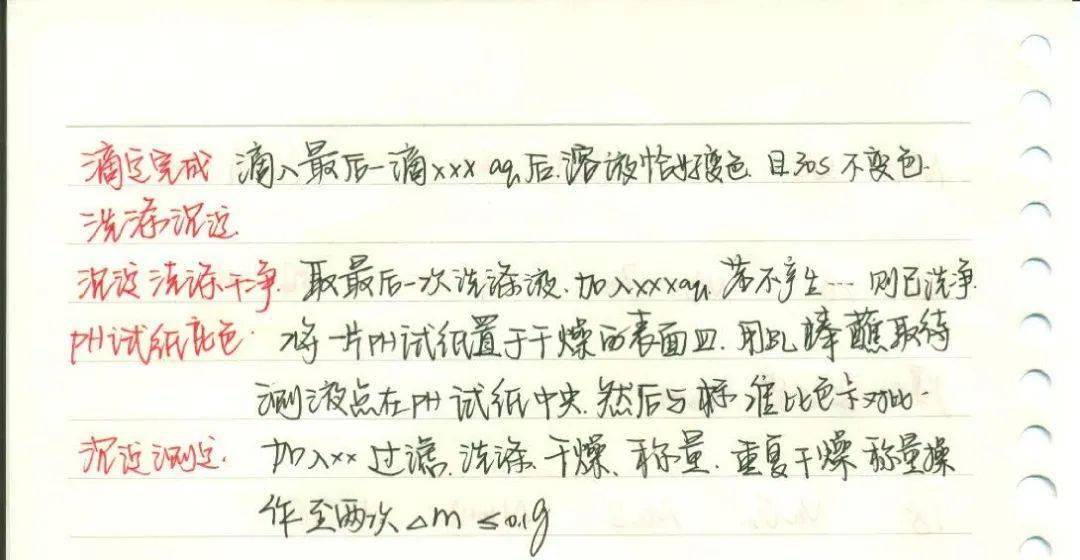 滴定完成 滴入最后一滴xxx aq后.溶液恰好变色.且30s不变色.
洗涤沉淀.
沉淀洗涤干净. 取最后一次洗涤液.加入xxxaq.若不产生…则已洗净.
pH试纸比色. 将一片pH试纸置于干燥的表面皿.用BL棒蘸取待
测液点在pH试纸中央.然后与标准比色卡对比.
沉淀测定. 加入xx过滤.洗涤.干燥.称量.重复干燥称量操
作至两次△m≤0.1g